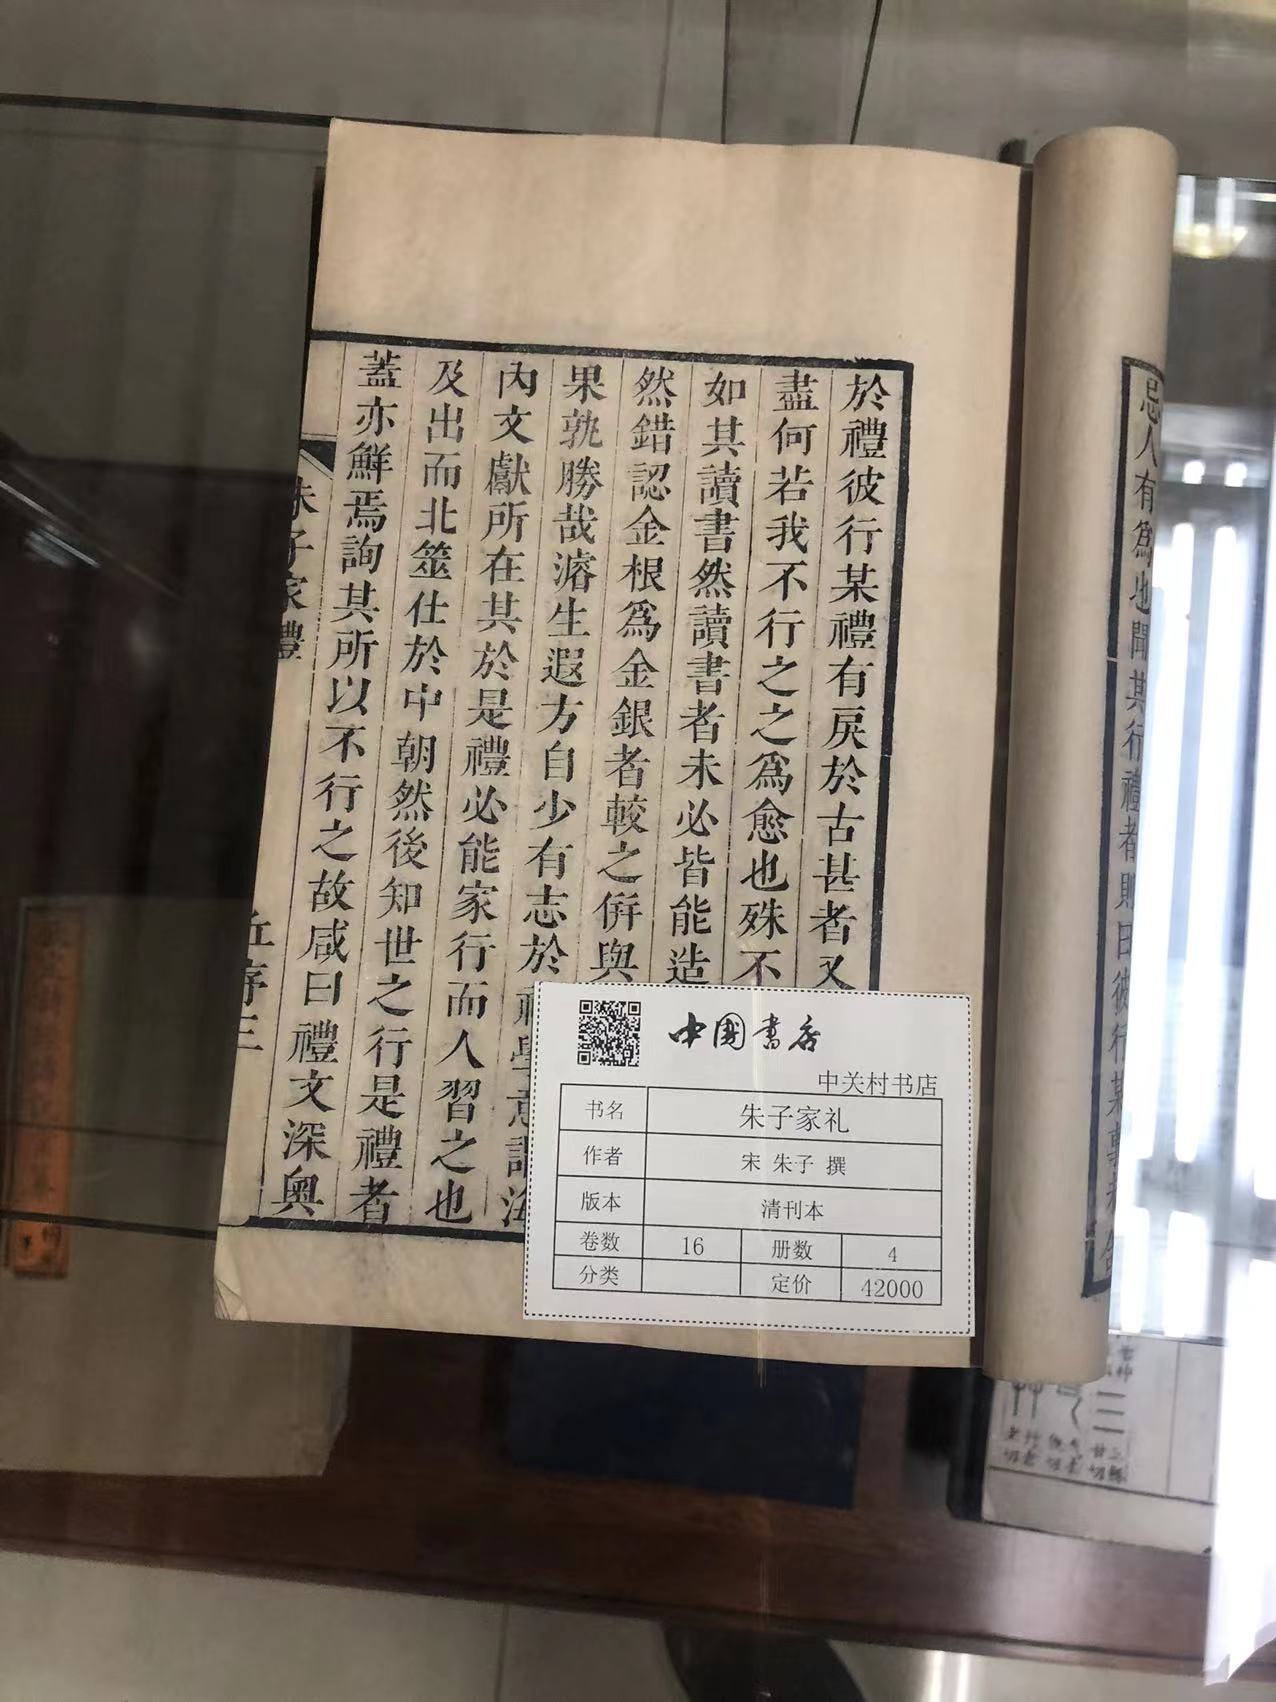 忌人有爲也聞其行禮者則曰彼行某事
於禮彼行某禮有戾於古甚者又
盡何若我不行之之爲愈也殊不
如其讀書然讀書者未必皆能造
然錯認金根爲金銀者較之倂與
果孰勝哉濬生遐方自少有志於禮學意謂海
內文獻所在其於是禮必能家行而人習之也
及出而北筮仕於中朝然後知世之行是禮者
蓋亦鮮焉詢其所以不行之故咸曰禮文深奧
朱子家禮
丘序三
中國書店
中关村书店
书名 朱子家礼
作者 宋 朱子 撰
版本 清刊本
卷数 16 册数 4
分类 定价 42000